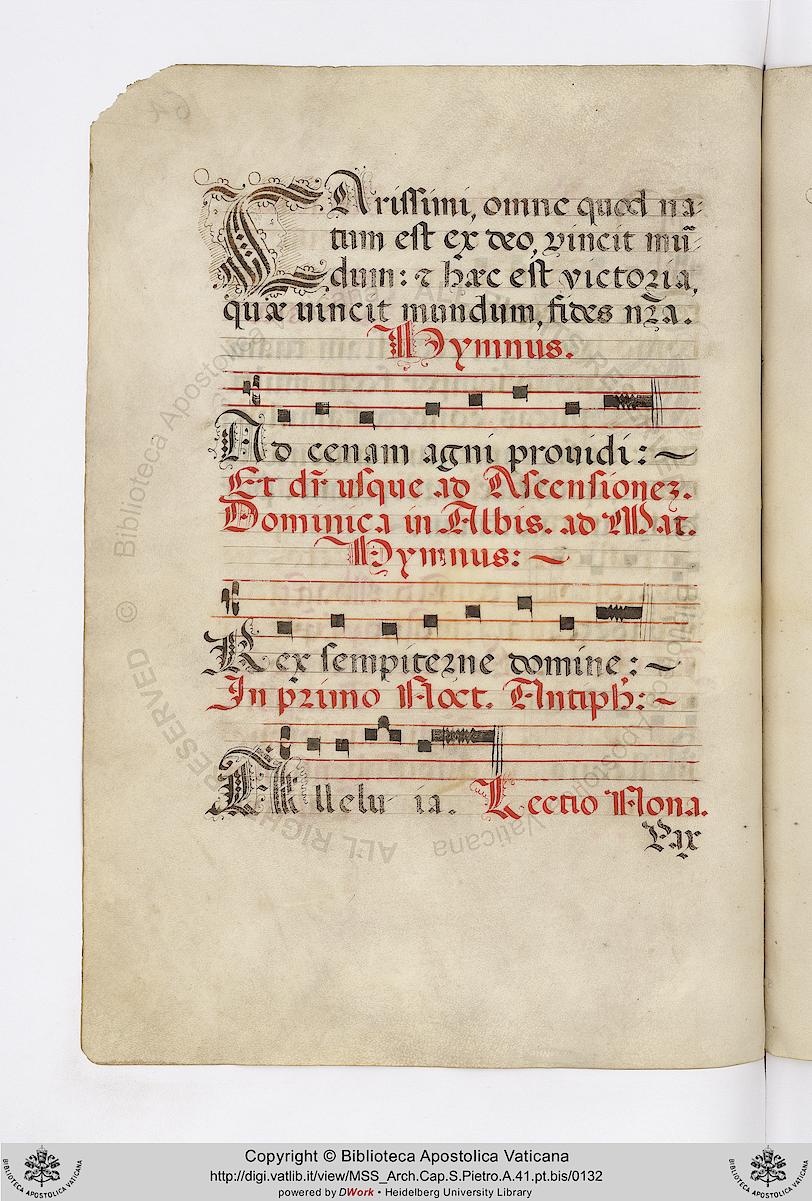 CArissimi, omne quod na-
tum est ex deo, vincit mū-
dum: & hæc est victoria,
quæ vincit mundum, fides nr̃a.
Hymnus.
Ad cenam agni prouidi: ~
Et dr̃ usque ad Ascensionez.
Dominica in Albis. ad Mat.
Hymnus: ~
Rex sempiterne domine: ~
In primo Noct. Antiph: ~
Allelu ia. Lectio Nona.
Pax
© Biblioteca Apostolica Vaticana ALL RIGHTS RESERVED
Copyright © Biblioteca Apostolica Vaticana
http://digi.vatlib.it/view/MSS_Arch.Cap.S.Pietro.A.41.pt.bis/0132
powered by DWork • Heidelberg University Library
BIBLIOTECA APOSTOLICA VATICANA
BIBLIOTECA APOSTOLICA VATICANA